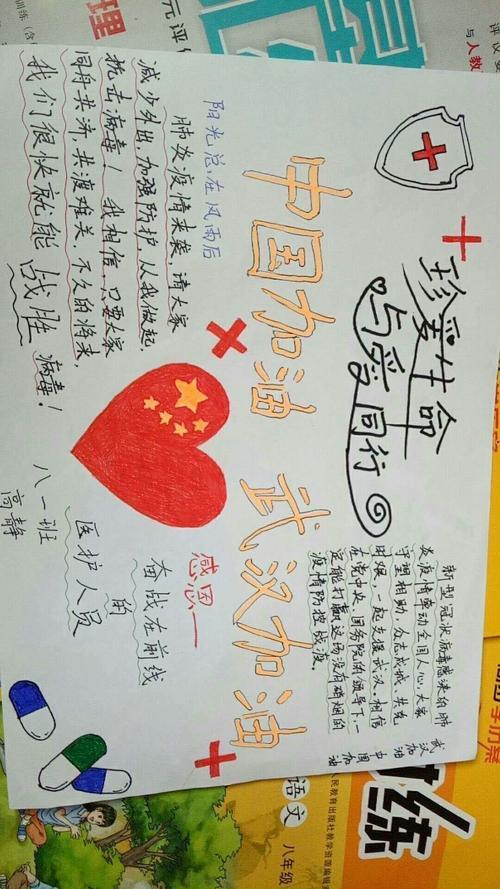 珍爱生命
与爱同行
新型冠状病毒感染的肺
炎疫情牵动全国人心,大家
守望相助,众志成城、共克
时艰、一起支援武汉。相信
在党中央、国务院的领导下一
定能打赢这场没有硝烟的
疫情防控战疫。
武汉
加油
中国
加油
中国加油 武汉加油
阳光总在风雨后
肺炎疫情来袭,请大家
减少外出,加强防护,从我做起,
抗击病毒!我相信,只要大家
同舟共济,共渡难关,不久的将来,
我们很快就能战胜病毒!
感恩—
奋战在前线
的
医护人员
八一班
高静
理
元评
与人教
练
语文
八年级